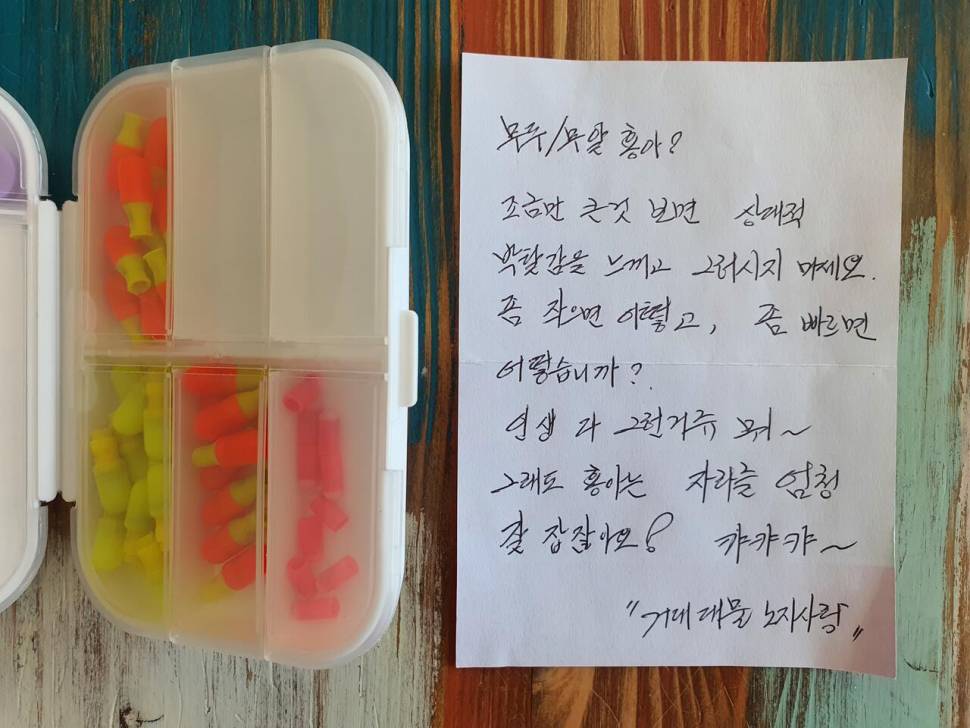 무루/무알 홍아?
조금만 큰것 보면 상대적
박탈감을 느끼고 그러시지 마세요.
좀 작으면 어떻고, 좀 빠르면
어떻습니까?
인생 다 그런거쥬 뭐~
그래도 홍아는 자라를 엄청
잘 잡잖아요! 캬캬캬~
"거대 대물 노자사랑"